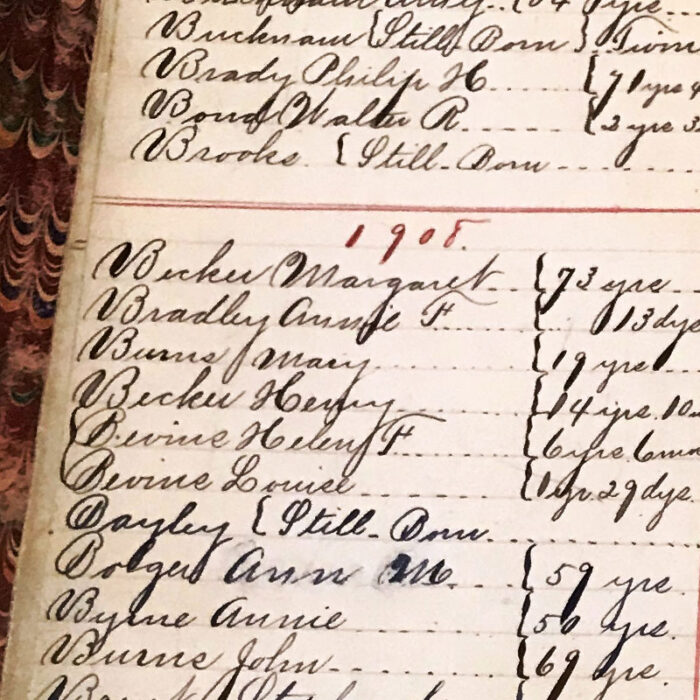 Bucknam {Still-Born} Twin
Brady Philip H. {71 yrs 4
Bond Walter R. {3 yrs 3
Brooks. {Still-Born
1908.
Becker Margaret {73 yrs
Bradley Annie F. { 13 dys
Burns Mary {19 yrs
Becker Henry {14 yrs. 10
Bevins Helen F {6 yrs 6 mos
Bevins Louise {1 yr. 29 dys.
Bayley {Still-Born
Bolger Ann M. {59 yrs.
Byrne Annie {50 yrs.
Burns John {69 yrs.